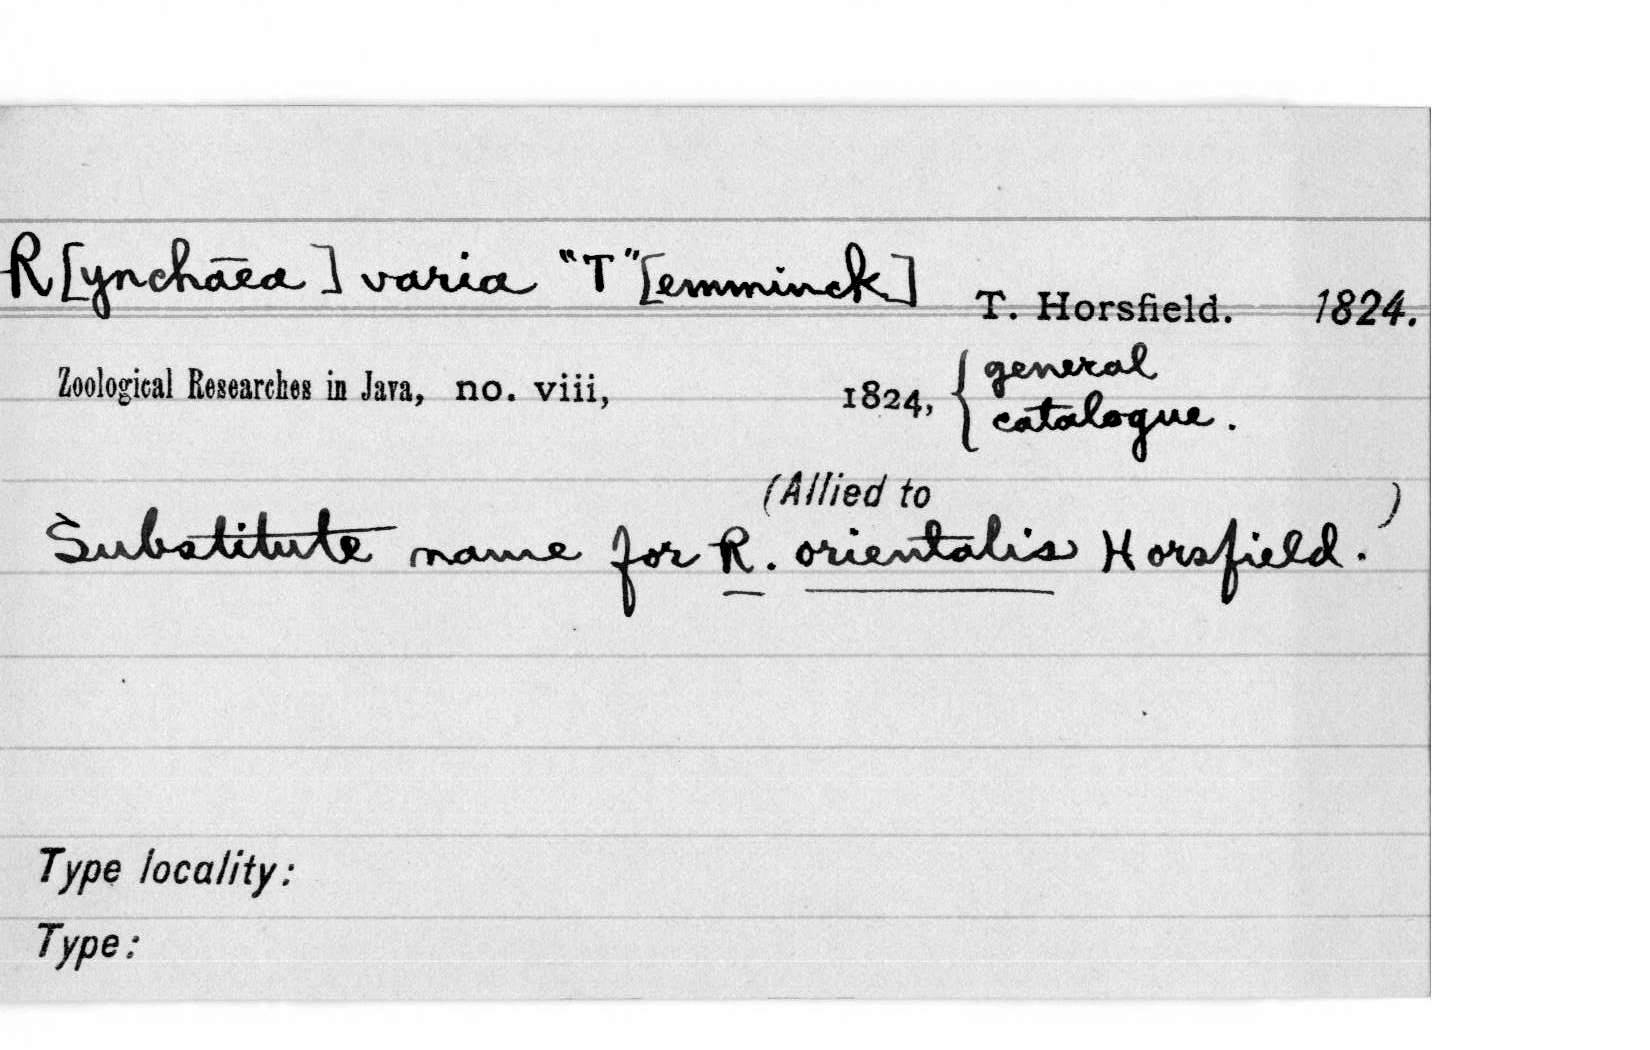 R[ynchaea] varia "T"[emminck] T. Horsfield. 1824.
Zoological Researches in Java, no. viii, 1824, { general
catalogue.
(Allied to )
Substitute name for R. orientalis Horsfield.
Type locality:
Type: